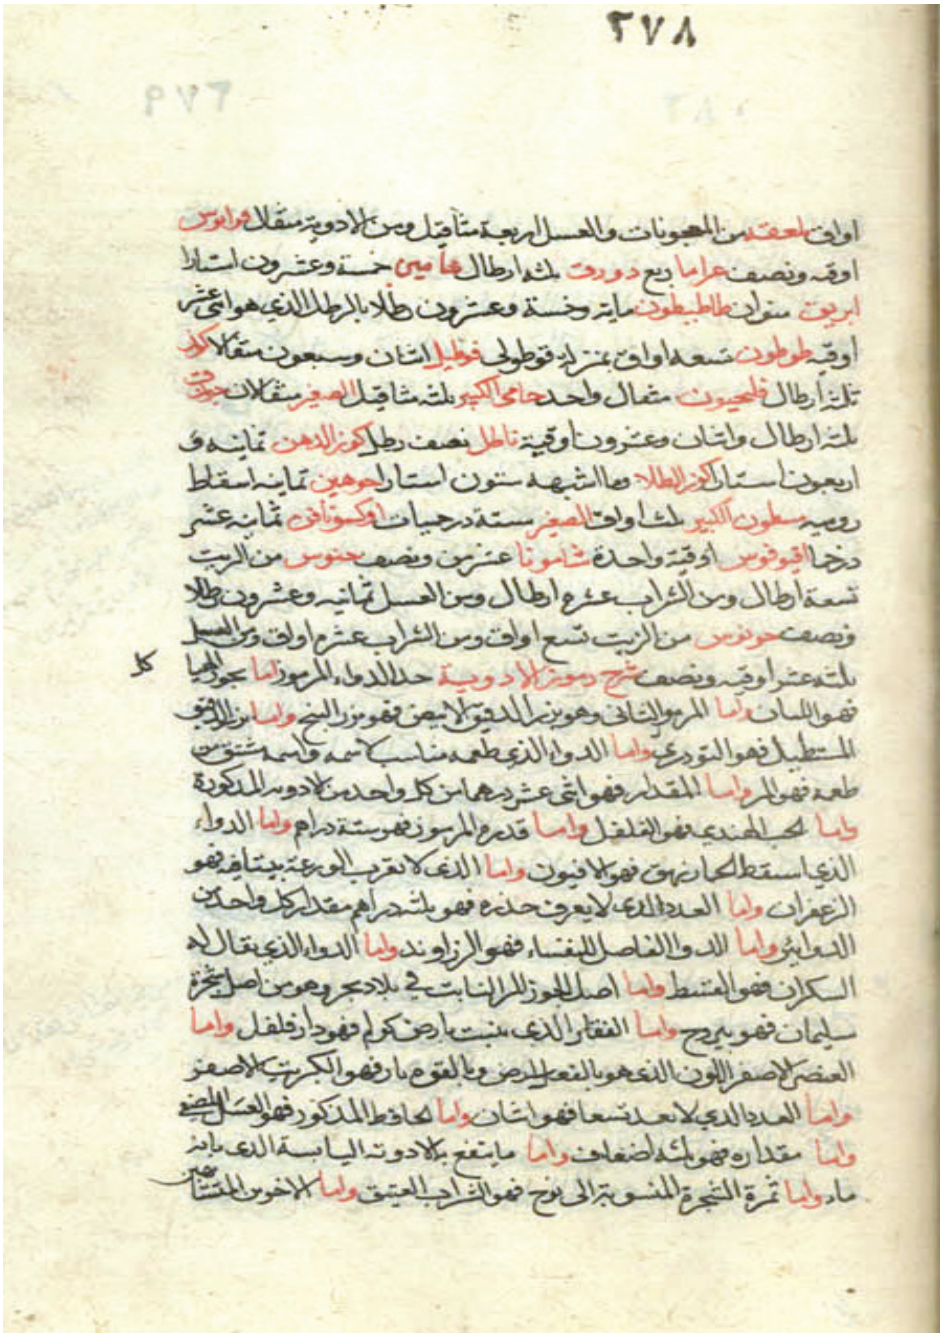 ٢٧٨
اواق ملعقه من المعجونات والعسل اربعة مثاقيل ومن الادوية مثقلا
اوقيه ونصف غراما ربع دورق ثلثه ارطال خمسة وعشرون استارا
ابريق منوان طالطيطون مايه وخمسة وعشرون رطلا بالرطل الذي هو اثنى عشر
اوقيه طوطون تسعه اواق بمنزله قوطولى اثنان وسبعون مثقالا كوز
ثلثه ارطال مثقال واحد حامى الكبير ثلثه مثاقيل الصغير مثقالان
ثلثه ارطال واثنان وعشرون اوقية ناطل نصف رطل كوز الدهن ثمانيه و
اربعون استارا كوز الطلا وما اشبهه ستون استارا جوهين ثمانيه اسقاط
روميه مسطرون الكبير ثلث اواق الصغير ستة درخميات اوكسوثافن ثمانيه عشر
درخما اوقية واحدة شامونا عشرين ونصف حنوس من الزيت
تسعة ارطال ومن الشراب عشره ارطال ومن العسل ثمانيه وعشرون رطلا
ونصف حونوس من الزيت تسع اواق ومن الشراب عشره اواق ومن العسل
ثلثه عشر اوقيه ونصف شرح رموز الادوية حل الدواء المرموز اما
كل
فهو اللسان واما المرموز الثانى وهو بزر الدقيق الابيض فهو بزر البنج واما
المستطيل فهو التودرى واما الدواء الذي طعمه مناسب لاسمه واسمه مشتق من
طعمه فهو المر واما المقدار فهو اثنى عشر درهما من كل واحد من الادويه المذكورة
واما الحب الهندي فهو الفلفل واما قدره المرموز فهو ستة دراهم واما الدواء
الذي اسقط الحمار نهق فهو الافيون واما الذى لا تقرب الوزغة بيتا فيه فهو
الزعفران واما العدد الذى لا يعرف جذره فهو ثلثه دراهم مقدار كل واحد من
الدوائين واما الدوا الفاضل للنفساء فهو الزراوند واما الدواء الذي يقال له
السكران فهو القسط واما اصل الجوز المر النابت في بلاد بحر وهو من اصل شجرة
سليمان فهو يبروح واما الفقار الذى ينبت بارض كولم فهو دار فلفل واما
العنصر الاصفر اللون الذى هو بالفعل ارض وبالقوه نار فهو الكبريت الاصفر
واما العدد الذي لا يعد تسعا فهو اثنان واما الحافظ المذكور فهو العسل
واما مقداره فهو ثلثه اضعاف واما ما ينتفع به الادوية اليابسة الذى
ماء واما ثمرة الشجرة المنسوبة الى نوح فهو الشراب العتيق واما الاخوين المتشابهين